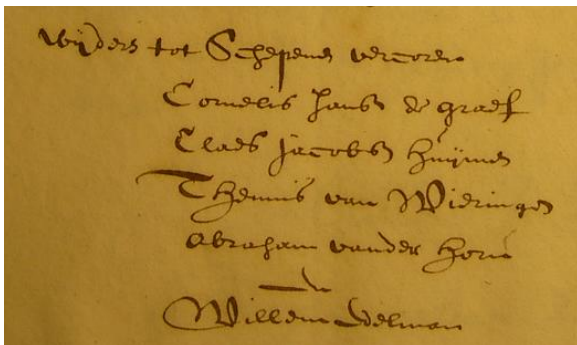 Wijders tot Schepenen vercoren
Cornelis Jansz de graef
Claes Jacobsz Huijmen
Theunis van Wieringen
Abraham vander Horn
Willem Edelman